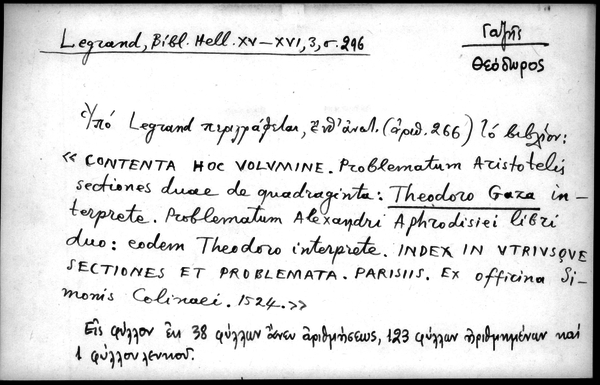 Legrand, Bibl. Hell. XV–XVI, 3, σ. 296
Γαζῆς
Θεόδωρος
Ὑπό Legrand περιγράφεται, ἔνθ' ἀνωτ. (ἀριθ. 266) τό βιβλίον:
« CONTENTA HOC VOLVMINE. Problematum Aristotelis
sectiones duae de quadraginta: Theodoro Gaza in-
terprete. Problematum Alexandri Aphrodisiei libri
duo: eodem Theodoro interprete. INDEX IN VTRIVSQVE
SECTIONES ET PROBLEMATA. PARISIIS. Ex officina Si-
monis Colinaei. 1524.»
Εἰς φύλλον ἐκ 38 φύλλων ἄνευ ἀριθμήσεως, 123 φύλλων ἠριθμημένων καί
1 φύλλου λευκοῦ.